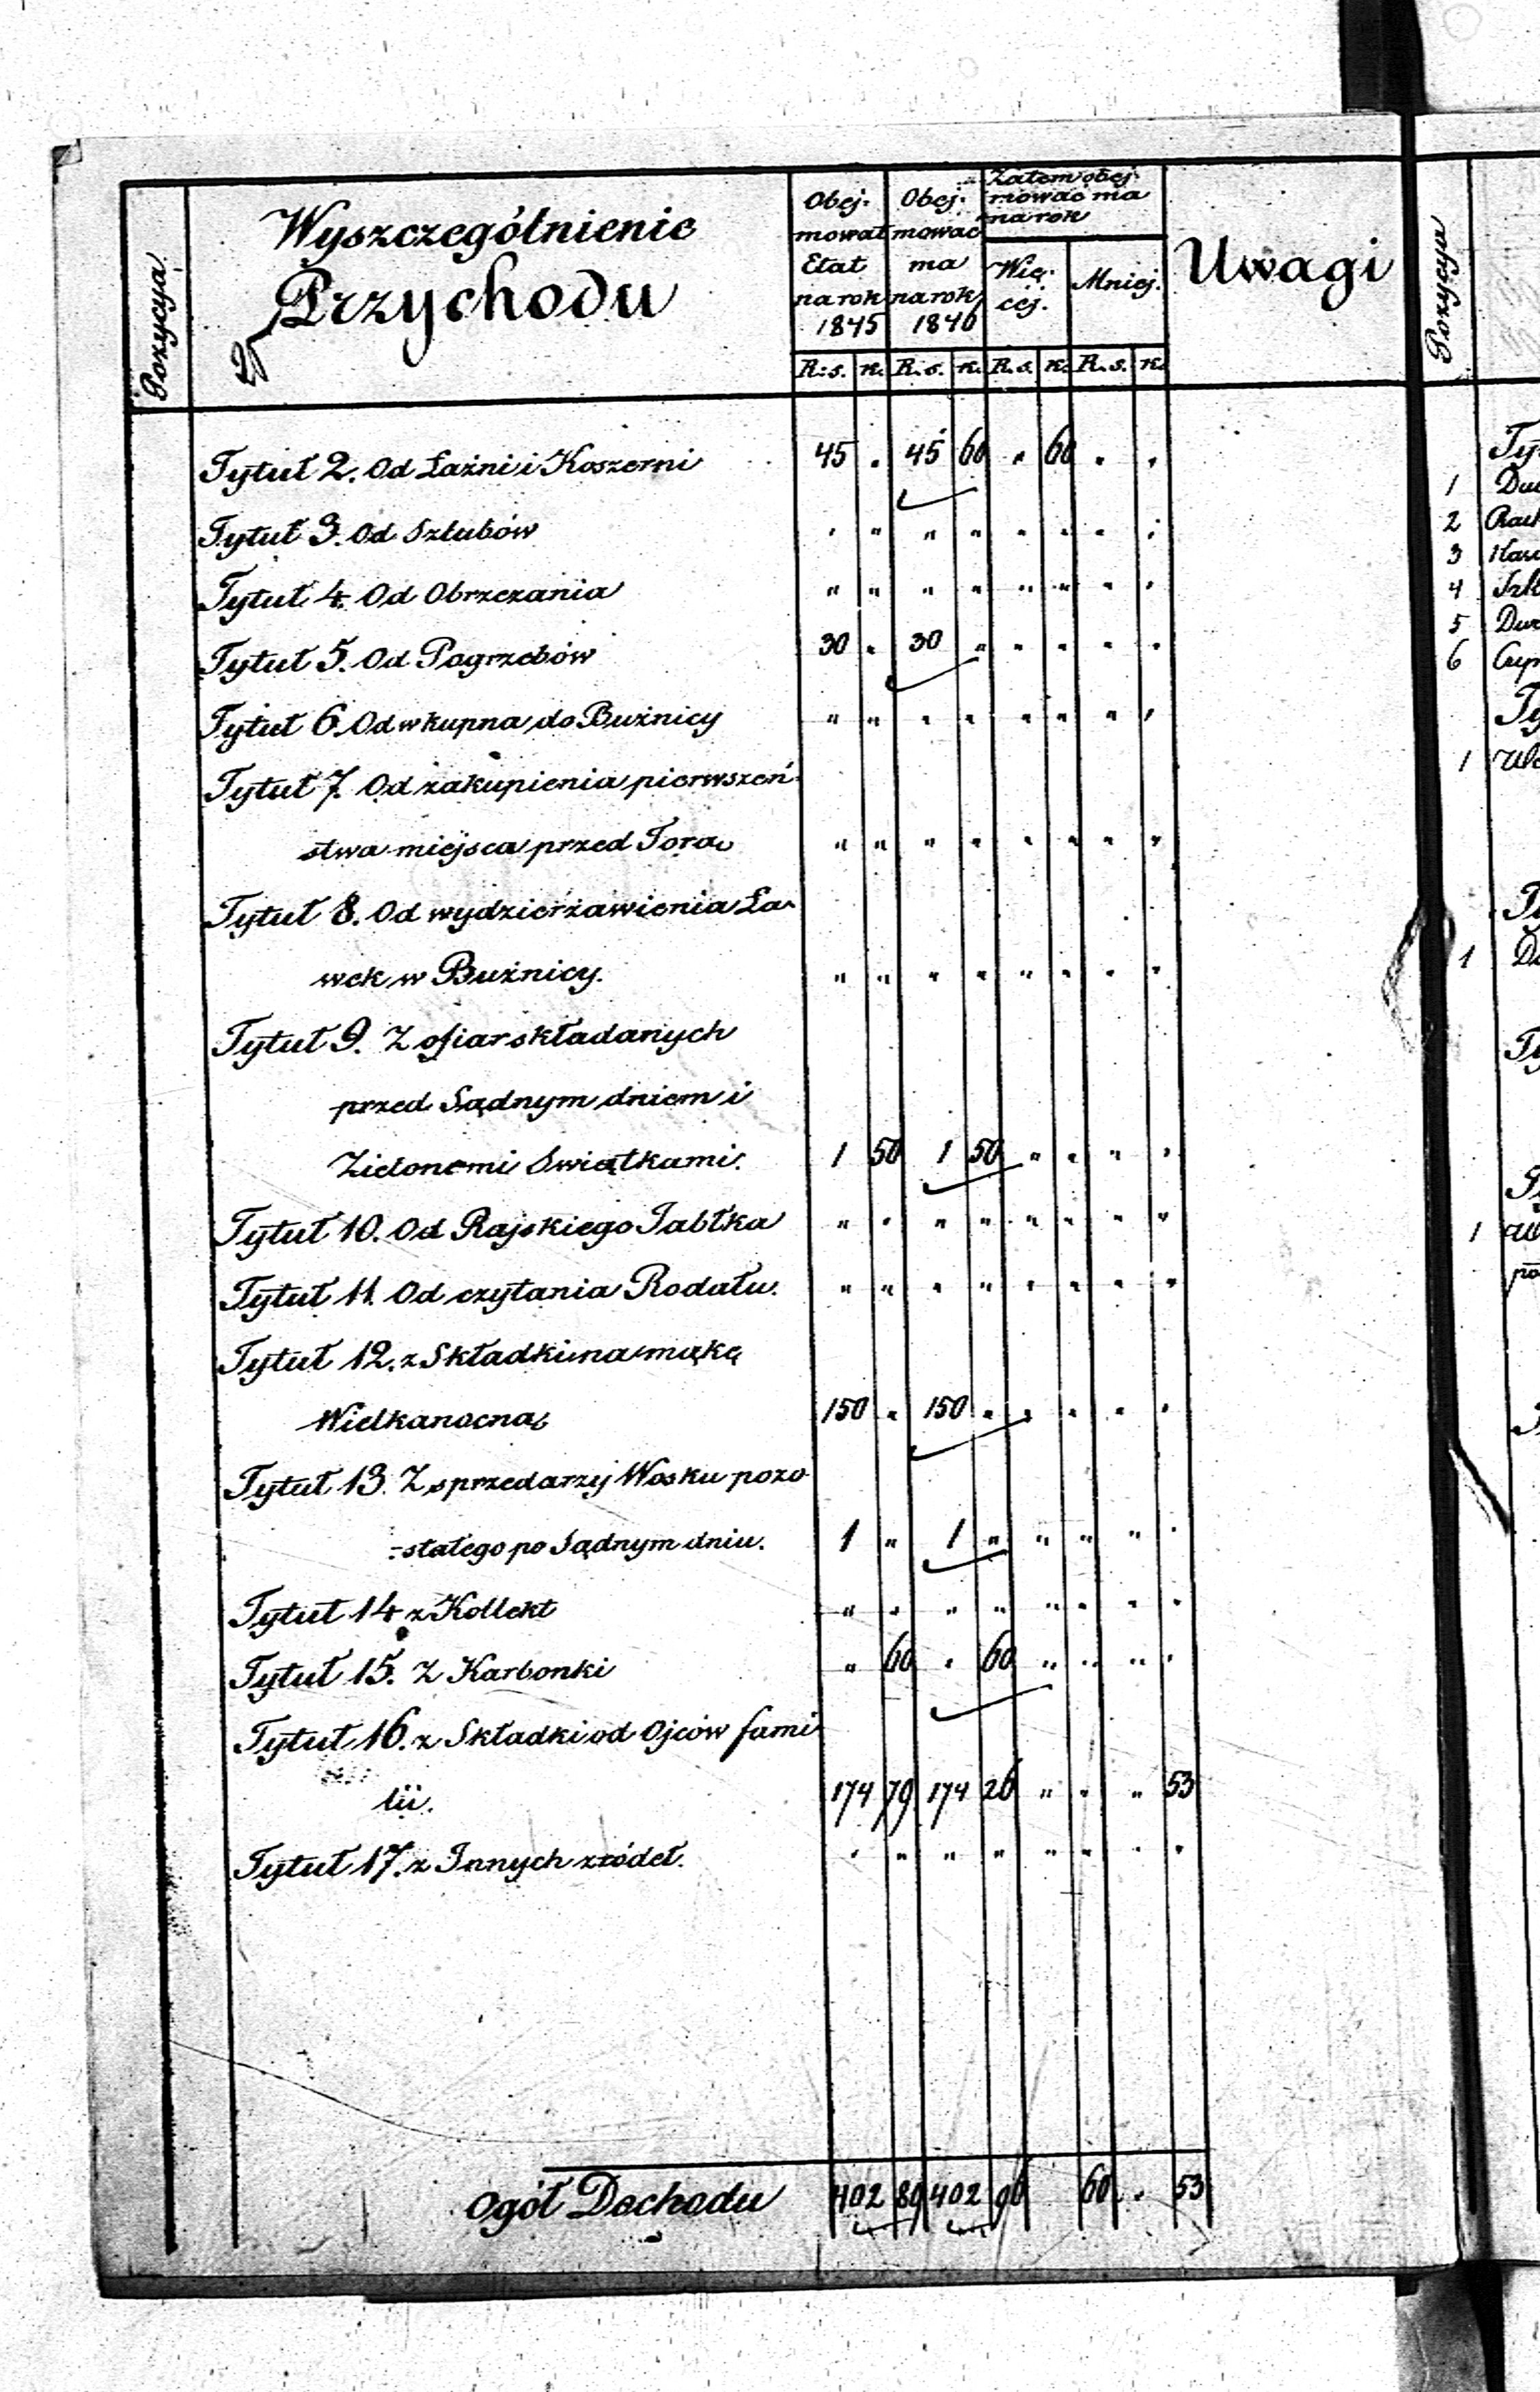 Pozycya
Wyszczególnienie
Przychodu
Obej-
mował
Etat
na rok
1845
Obej-
mować
ma
na rok
1846
Zatem obej-
mować ma
na rok
Wię-
cej.
Mniej.
Uwagi
R. s. k. R. s. k. R. s. k. R. s. k.
Tytuł 2. Od Łaźni i Koszerni 45 " 45 60 " 60 " "
Tytuł 3. Od Szlubów " " " " " " " "
Tytuł 4. Od Obrzezania " " " " " " " "
Tytuł 5. Od Pogrzebów 30 " 30 " " " " "
Tytuł 6. Od wkupna do Bużnicy " " " " " " " "
Tytuł 7. Od zakupienia pierwszeń-
stwa miejsca przed Torą " " " " " " " "
Tytuł 8. Od wydzierżawienia Ła-
wek w Bużnicy. " " " " " " " "
Tytuł 9. Z ofiar składanych
przed Sądnym dniem i
Zielonemi Swiątkami. 1 50 1 50 " " " "
Tytuł 10. Od Rajskiego Jabłka " " " " " " " "
Tytuł 11. Od czytania Rodału. " " " " " " " "
Tytuł 12. z Składki na mąkę
Wielkanocną 150 " 150 " " " " "
Tytuł 13. Z sprzedarzy Wosku pozo-
-stałego po Sądnym dniu. 1 " 1 " " " " "
Tytuł 14 z Kollekt " " " " " " " "
Tytuł 15. Z Karbonki " 60 " 60 " " " "
Tytuł 16. z Składki od Ojców fami-
lii. 174 79 174 26 " " " 53
Tytuł 17. z Innych zródeł. " " " " " " " "
Ogół Dochodu 402 89 402 96 60 " 53
Pozycya
1
2
3
4
5
6
1
1
1